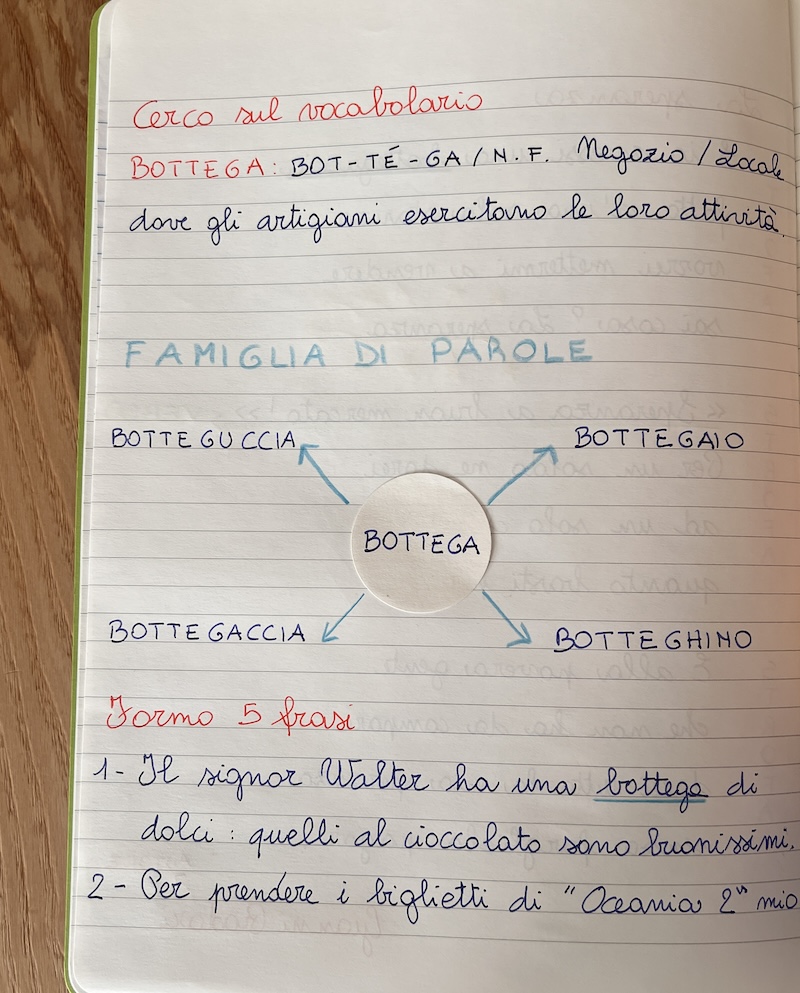 Cerco sul vocabolario
BOTTEGA: BOT-TÉ-GA / N.F. Negozio / Locale
dove gli artigiani esercitano le loro attività.
FAMIGLIA DI PAROLE
BOTTEGUCCIA BOTTEGAIO
BOTTEGA
BOTTEGACCIA BOTTEGHINO
Formo 5 frasi
1- Il signor Walter ha una bottega di
dolci: quelli al cioccolato sono buonissimi.
2- Per prendere i biglietti di "Oceania 2" mio